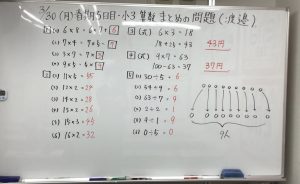 3/30(月)春期5日目・小3 算数 まとめの問題(渡邉)
1 (1) 6×8=6×7+6
(2) 7×4=
(3) 5×9=
2 (1) 11×5=55
(2) 12×2=24
(3) 14×2=28
(4) 13×2=26
(5) 15×3=45
(6) 16×2=32
3 (式) 6×3=18
43円
4 (式) 9×7=63
100-63=37
37円
5 (1) 30÷5=6
(2) 54÷9=6
(3) 63÷7=9
(4) 2÷2=1
(5) 9÷1=9
(6) 0÷5=0
9人